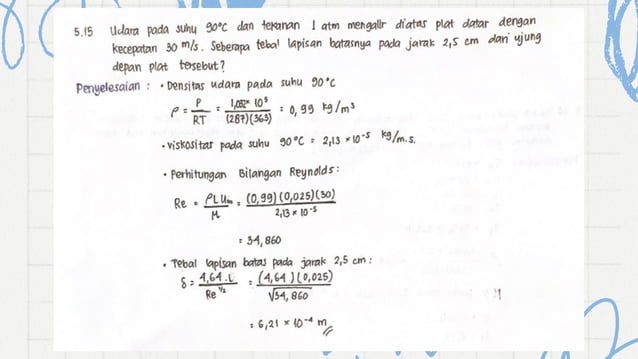 5.15 Udara pada suhu 90°C dan tekanan 1 atm mengalir diatas plat datar dengan
kecepatan 30 m/s. Seberapa tebal lapisan batasnya pada jarak 2,5 cm dari ujung
depan plat tersebut?
Penyelesaian : • Densitas udara pada suhu 90°C
ρ = P/RT = 1,032 × 10⁵/(287)(363) = 0,99 kg/m³
• viskositas pada suhu 90°C = 2,13 × 10⁻⁵ kg/m.s.
• Perhitungan Bilangan Reynolds :
Re = ρLU∞/μ = (0,99)(0,025)(30)/2,13 × 10⁻⁵
= 34,860
• Tebal lapisan batas pada jarak 2,5 cm :
δ = 4,64.L/Re^1/2 = (4,64)(0,025)/√34,860
= 6,21 × 10⁻⁴ m